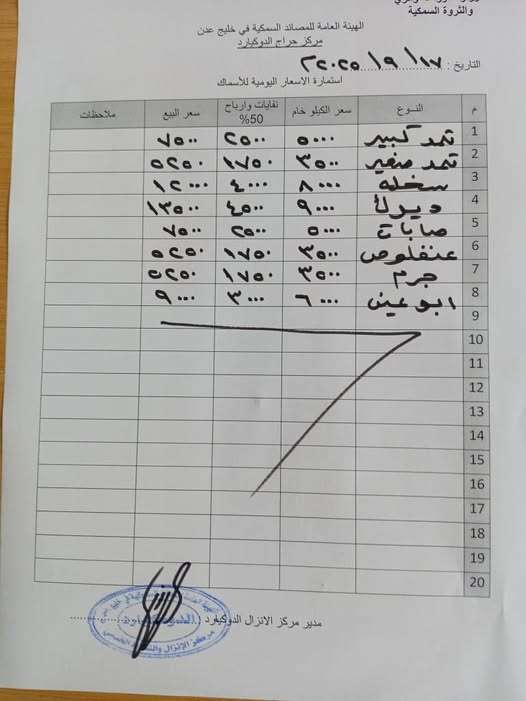 والثروة السمكية
الهيئة العامة للمصائد السمكية في خليج عدن
مركز حراج الدوكيارد
التاريخ : ١٧ / ٩ / ٢٠٢٥
استمارة الاسعار اليومية للأسماك
م النـــوع سعر الكيلو خام نفايات وارباح 50% سعر البيع ملاحظات
1 ثمد كبير ٥٠٠٠ ٢٥٠٠ ٧٥٠٠
2 ثمد صغير ٣٥٠٠ ١٧٥٠ ٥٢٥٠
3 سخله ٨٠٠٠ ٤٠٠٠ ١٢٠٠٠
4 ديرك ٩٠٠٠ ٤٥٠٠ ١٣٥٠٠
5 ٥٠٠٠ ٢٥٠٠ ٧٥٠٠
6 عنفلوص ٣٥٠٠ ١٧٥٠ ٥٢٥٠
7 جرم ٣٥٠٠ ١٧٥٠ ٥٢٥٠
8 ابو عين ٦٠٠٠ ٣٠٠٠ ٩٠٠٠
9
10
11
12
13
14
15
16
17
18
19
20
مدير مركز الانزال الدوكيارد